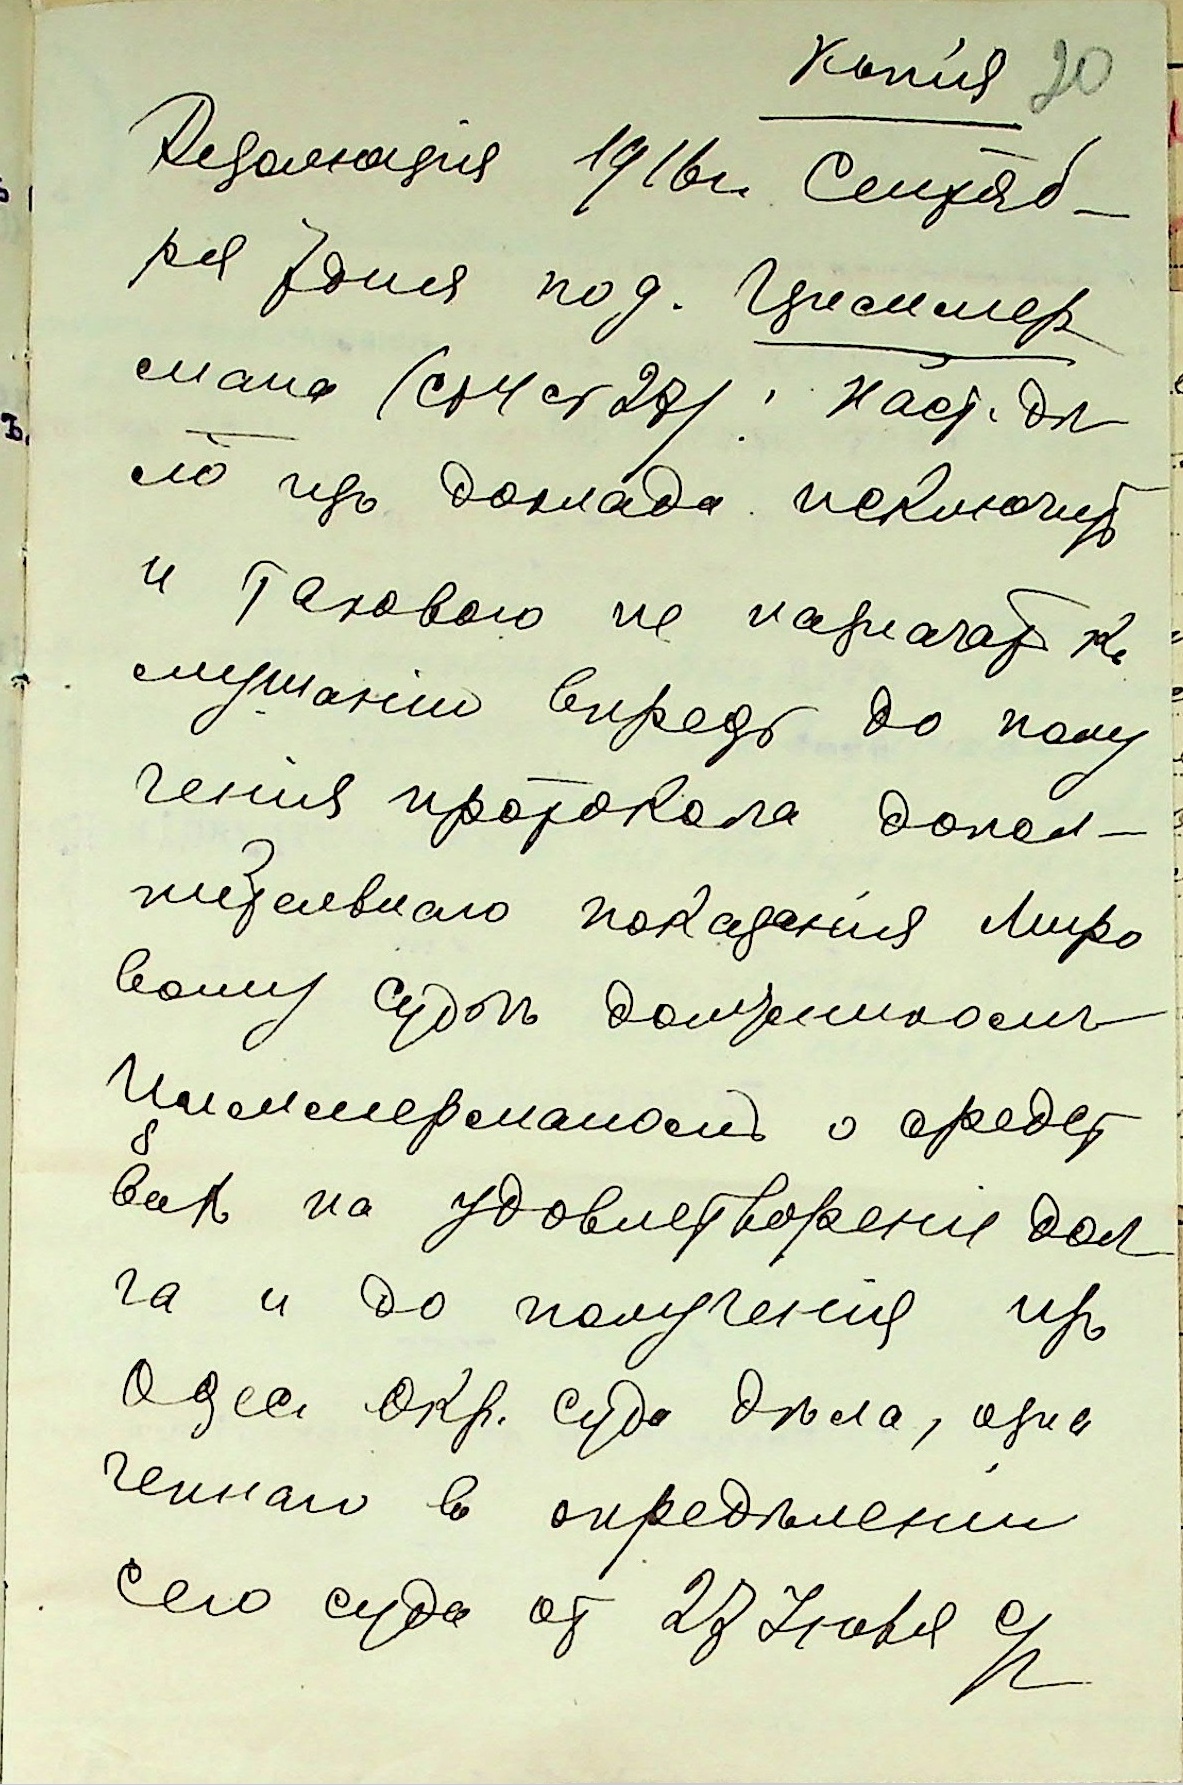 Копія 20
Резолюція 1916 г. Сентяб-
ря 7 дня по д. Циммер
мана (СЧ ст 27). Наст. дѣ
ло изъ доклада исключить
и такового не назначать къ
слушанію впредь до полу
ченія протокола допол-
нительнаго показанія Миро
вому судьѣ должникомъ
Циммерманомъ о средст
вахъ на удовлетвореніе дол
га и до полученія изъ
Одес. Окр. Суда дѣла, озна
ченнаго въ опредѣленіи
сего суда от 27 Іюня с/г